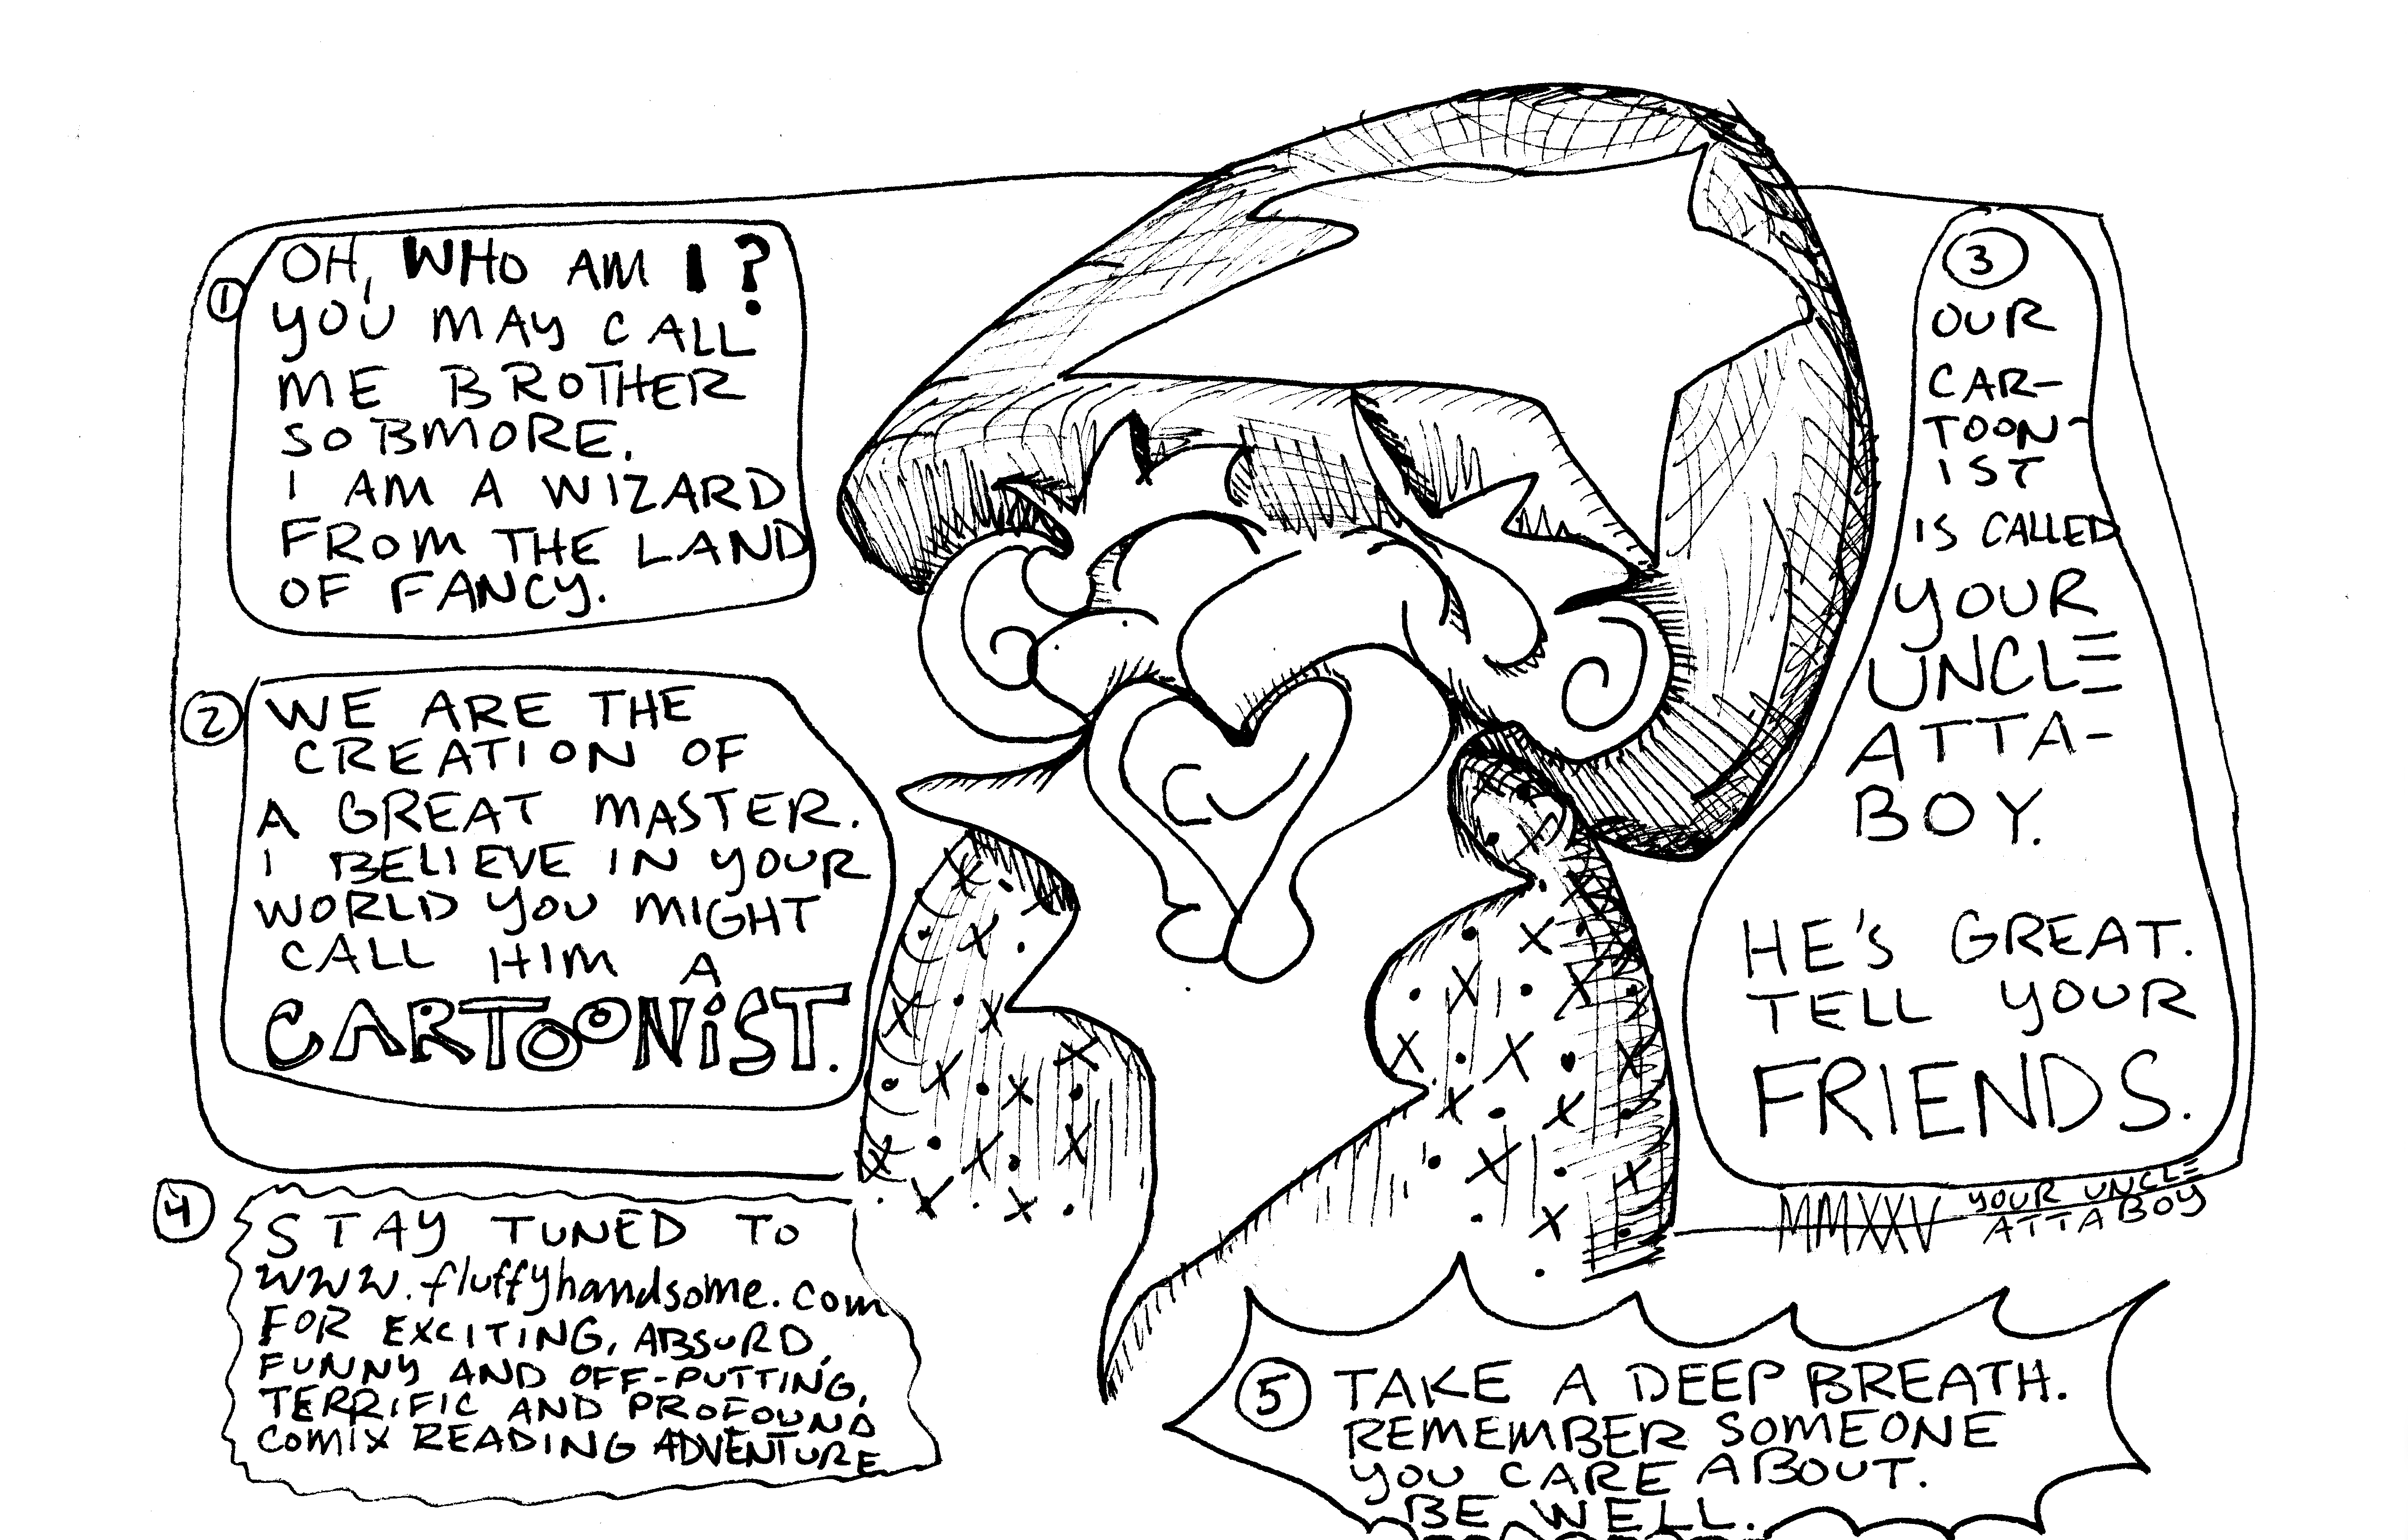 1
OH, WHO AM I?
YOU MAY CALL
ME BROTHER
SOBMORE.
I AM A WIZARD
FROM THE LAND
OF FANCY.
2
WE ARE THE
CREATION OF
A GREAT MASTER.
I BELIEVE IN YOUR
WORLD YOU MIGHT
CALL HIM A
CARTOONiST.
3
OUR
CAR-
TOON-
IST
IS CALLED
YOUR
UNCLE
ATTA-
BOY.
HE'S GREAT.
TELL YOUR
FRIENDS.
MMXXV YOUR UNCLE
ATTABOY
4
STAY TUNED TO
www.fluffyhandsome.com
FOR EXCITING, ABSURD,
FUNNY AND OFF-PUTTING,
TERRIFIC AND PROFOUND
COMIX READING ADVENTURE
5
TAKE A DEEP BREATH.
REMEMBER SOMEONE
YOU CARE ABOUT.
BE WELL.